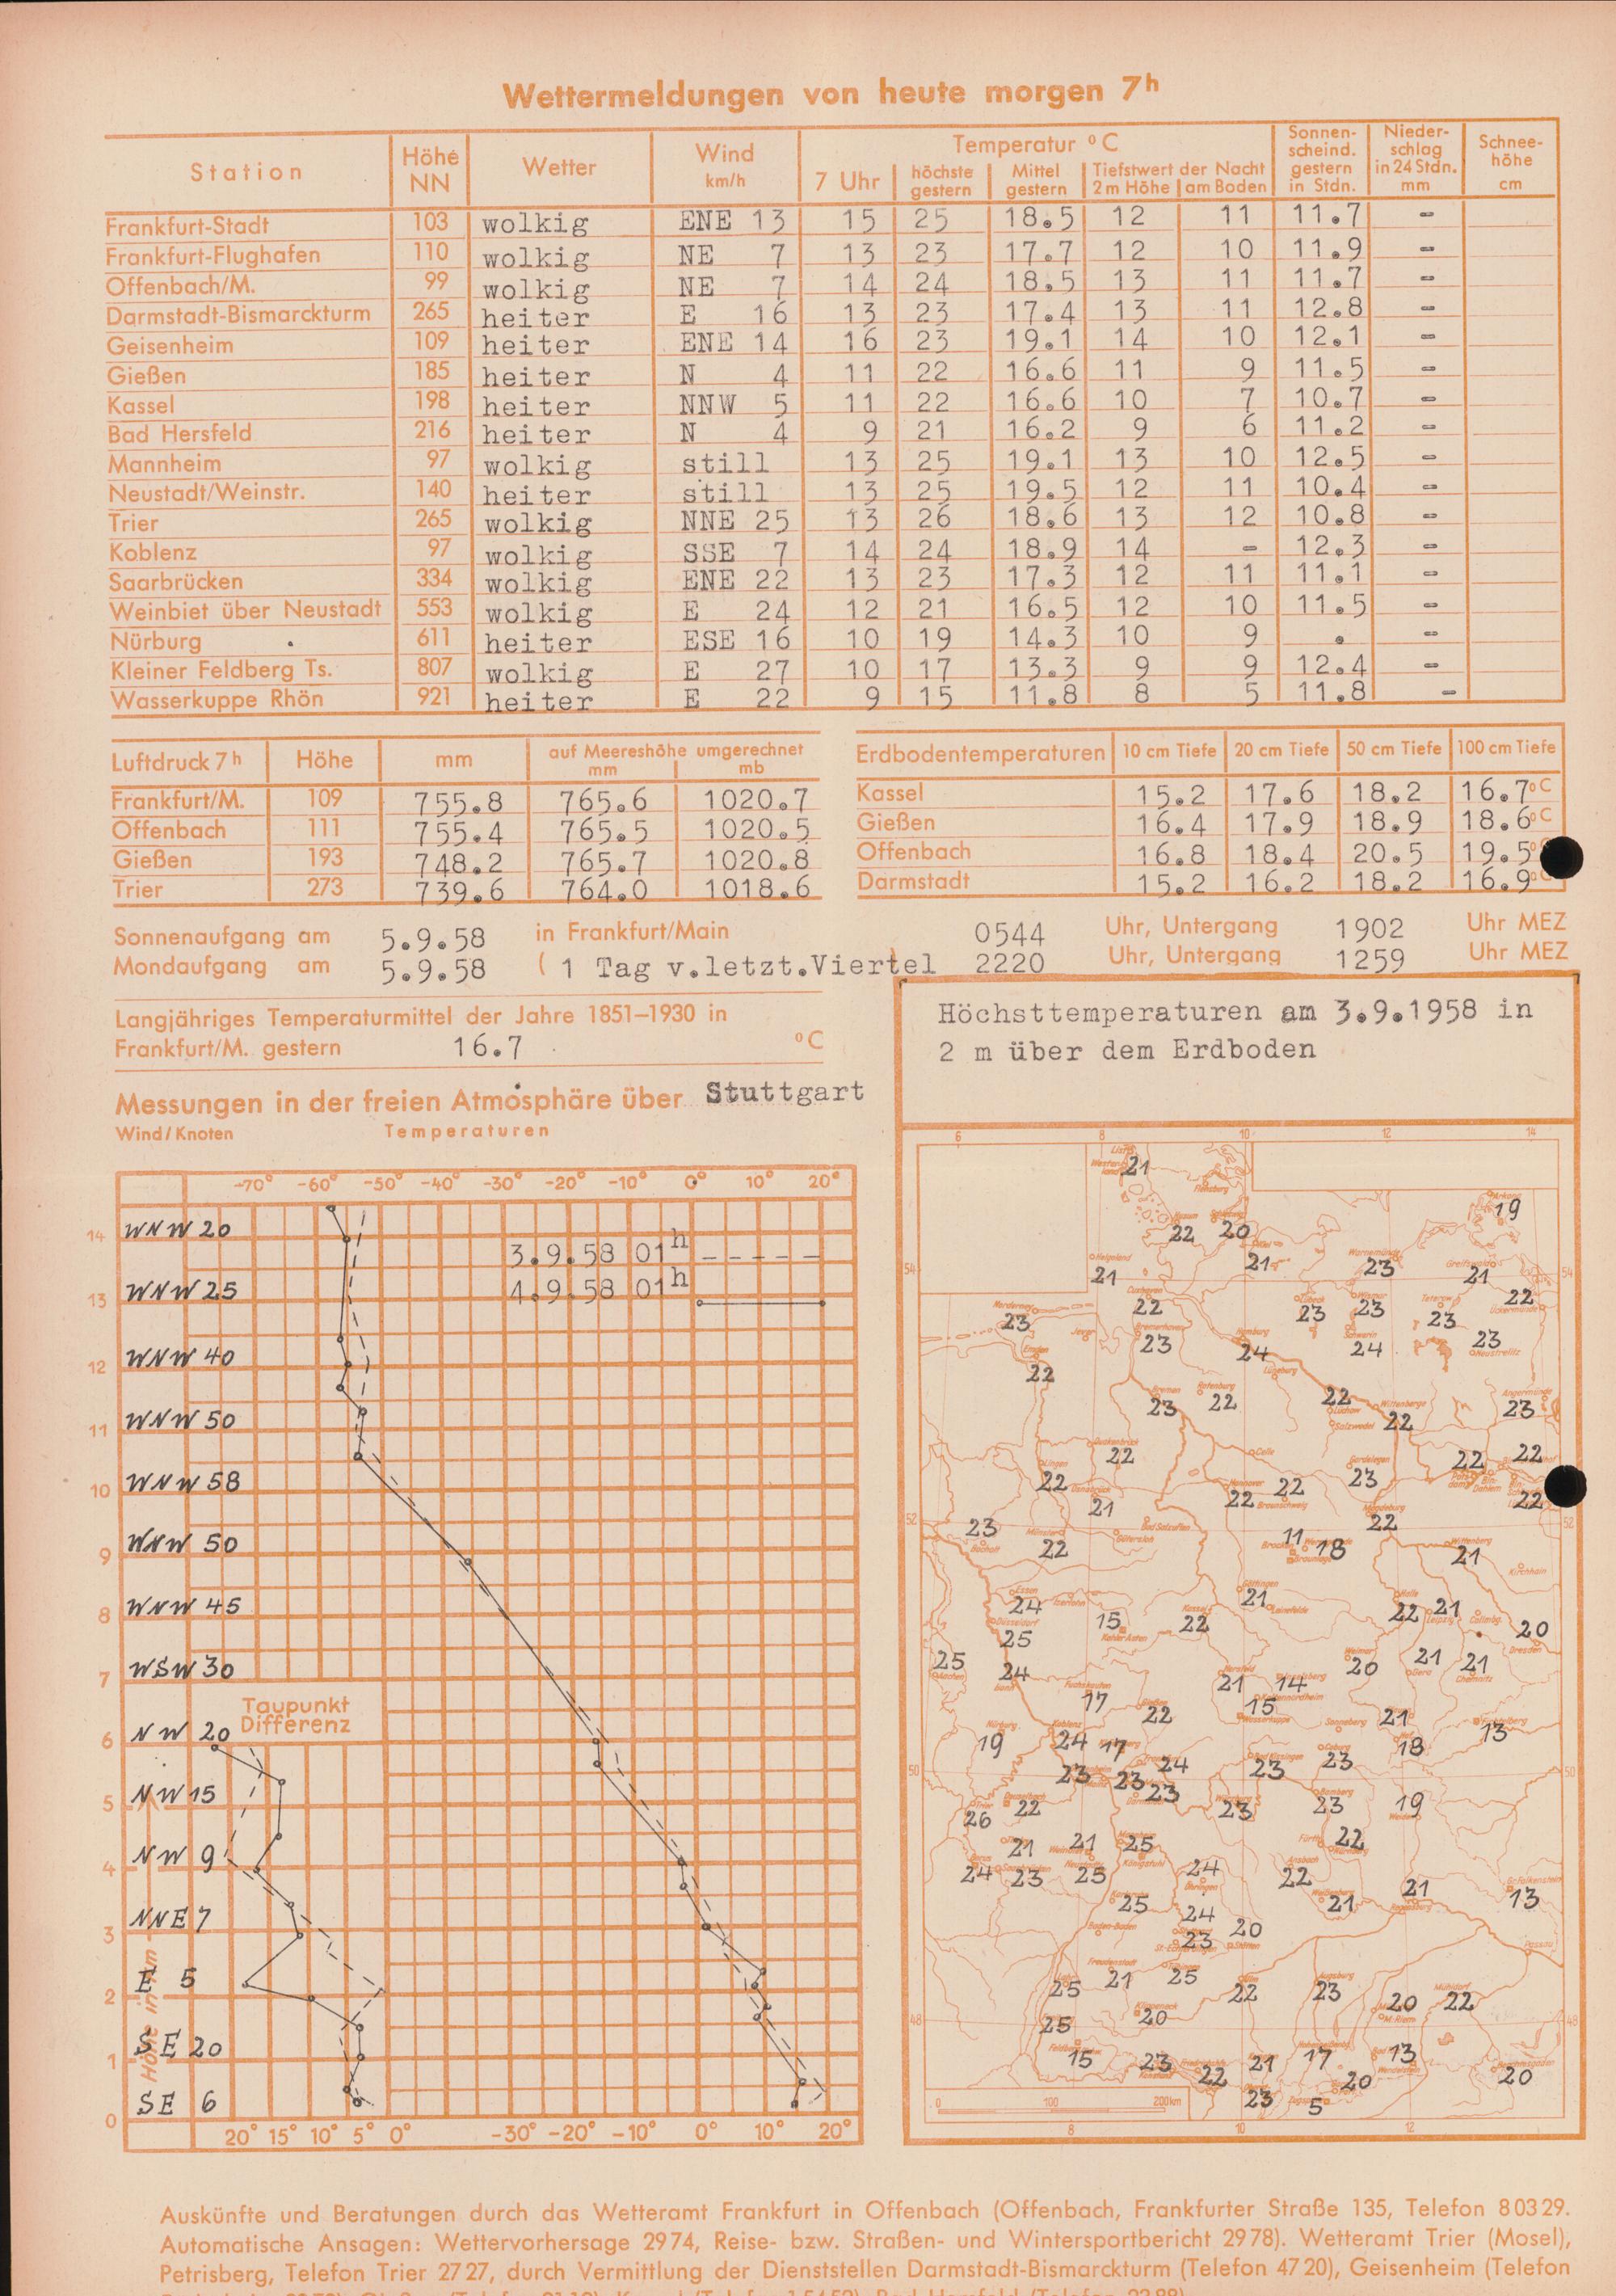 Wettermeldungen von heute morgen 7h
Station Höhe NN Wetter Wind km/h Temperatur °C Sonnenscheind. gestern in Stdn. Niederschlag in 24 Stdn. mm Schneehöhe cm
7 Uhr höchste gestern Mittel gestern Tiefstwert der Nacht 2 m Höhe am Boden
Frankfurt-Stadt 103 wolkig ENE 13 15 25 18.5 12 11 11.7 -
Frankfurt-Flughafen 110 wolkig NE 7 13 23 17.7 12 10 11.9 -
Offenbach/M. 99 wolkig NE 7 14 24 18.5 13 11 11.7 -
Darmstadt-Bismarckturm 265 heiter E 16 13 23 17.4 13 11 12.8 -
Geisenheim 109 heiter ENE 14 16 23 19.1 14 10 12.1 -
Gießen 185 heiter N 4 11 22 16.6 11 9 11.5 -
Kassel 198 heiter NNW 5 11 22 16.6 10 7 10.7 -
Bad Hersfeld 216 heiter N 4 9 21 16.2 9 6 11.2 -
Mannheim 97 wolkig still 13 25 19.1 13 10 12.5 -
Neustadt/Weinstr. 140 heiter still 13 25 19.5 12 11 10.4 -
Trier 265 wolkig NNE 25 13 26 18.6 13 12 10.8 -
Koblenz 97 wolkig SSE 7 14 24 18.9 14 - 12.3 -
Saarbrücken 334 wolkig ENE 22 13 23 17.3 12 11 11.1 -
Weinbiet über Neustadt 553 wolkig E 24 12 21 16.5 12 10 11.5 -
Nürburg 611 heiter ESE 16 10 19 14.3 10 9 . -
Kleiner Feldberg Ts. 807 wolkig E 27 10 17 13.3 9 9 12.4 -
Wasserkuppe Rhön 921 heiter E 22 9 15 11.8 8 5 11.8 -
Luftdruck 7h Höhe mm auf Meereshöhe umgerechnet mm mb
Frankfurt/M. 109 755.8 765.6 1020.7
Offenbach 111 755.4 765.5 1020.5
Gießen 193 748.2 765.7 1020.8
Trier 273 739.6 764.0 1018.6
Erdbodentemperaturen 10 cm Tiefe 20 cm Tiefe 50 cm Tiefe 100 cm Tiefe
Kassel 15.2 17.6 18.2 16.7°C
Gießen 16.4 17.9 18.9 18.6°C
Offenbach 16.8 18.4 20.5 19.5°
Darmstadt 15.2 16.2 18.2 16.9°C
Sonnenaufgang am 5.9.58 in Frankfurt/Main 0544 Uhr, Untergang 1902 Uhr MEZ
Mondaufgang am 5.9.58 ( 1 Tag v.letzt.Viertel 2220 Uhr, Untergang 1259 Uhr MEZ
Langjähriges Temperaturmittel der Jahre 1851–1930 in
Frankfurt/M. gestern 16.7 °C
Messungen in der freien Atmosphäre über Stuttgart
Wind/Knoten Temperaturen
-70° -60° -50° -40° -30° -20° -10° 0° 10° 20°
14 WNW 20
3.9.58 01h
13 WNW 25
4.9.58 01h
12 WNW 40
11 WNW 50
10 WNW 58
9 WNW 50
8 WNW 45
7 WSW 30
Taupunkt
Differenz
6 NW 20
5 NW 15
4 NW 9
3 NNE 7
2 E 5
1 SE 20
0 SE 6
Höhe in km
20° 15° 10° 5° 0° -30° -20° -10° 0° 10° 20°
Höchsttemperaturen am 3.9.1958 in
2 m über dem Erdboden
6 8 10 12 14
21
19
22 20
21 21 23 21
54 54
23 22 23 23 23 22
23 24 24 23
22
23 22 22 22 23
22 22 22
22 21 22 22 23 22
52 52
23 22 11 18 22 21
24 15 22 21 22 21 20
25
25 24 17 21 14 20 21 21
22 15 21 13
19 24 17 24 23 23 18
50 50
23 23 23
26 22 23 23 19
21 21 25 22
24 23 25 24 22
25 24 21 21 13
23 20
25 21 25 22 23 20 22
48 48
25 20
15 23 22 21 17 13 20
23 5 20
0 100 200km
8 10 12
Auskünfte und Beratungen durch das Wetteramt Frankfurt in Offenbach (Offenbach, Frankfurter Straße 135, Telefon 80329.
Automatische Ansagen: Wettervorhersage 2974, Reise- bzw. Straßen- und Wintersportbericht 2978). Wetteramt Trier (Mosel),
Petrisberg, Telefon Trier 2727, durch Vermittlung der Dienststellen Darmstadt-Bismarckturm (Telefon 4720), Geisenheim (Telefon